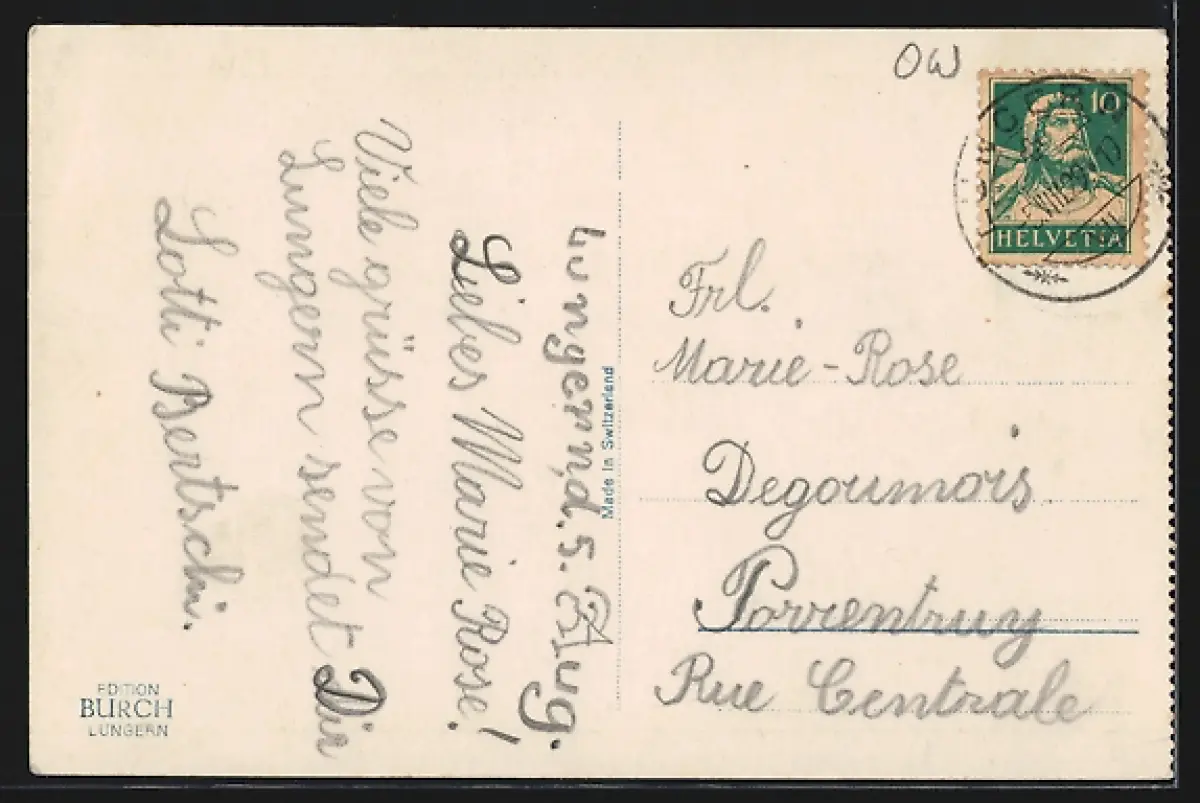 Lungern, d. 5. Aug.
Liebes Marie Rose!
Viele grüsse von
Lungern sendet Dir
Lotti Bertschi.
EDITION
BURCH
LUNGERN
Made in Switzerland
OW
10
HELVETIA
LUNGERN
Frl.
Marie-Rose
Degoumois
Porrentruy
Rue Centrale